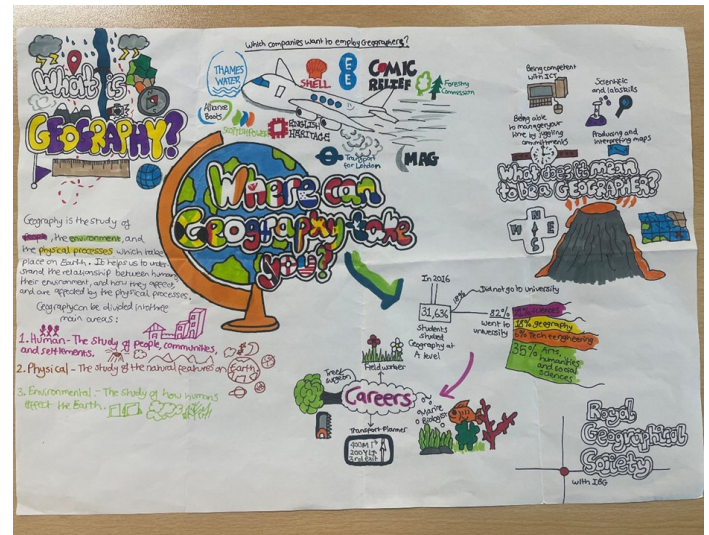 What is
GEOGRAPHY?
Geography is the study of
people, the environment, and
the physical processes which take
place on Earth. It helps us to under
stand the relationship between humans,
their environment, and how they affect
and are affected by the physical processes.
Geography can be divided into three
main areas:
1. Human - The study of people, communities,
and settlements.
2. Physical - The study of the natural features on Earth
3. Environmental - The study of how humans
affect the Earth.
Which companies want to employ Geographers?
THAMES
WATER
SHELL
EE
COMIC
RELIEF
Forestry
Commission
Alliance
Boots
SCOTTISHPOWER
ENGLISH
HERITAGE
Transport
for London
MAG
Where can
Geography take
you?
Being competent
with ICT
Scientific
and lab skills
Being able
to manage your
time by juggling
commitments
Producing and
interpreting maps
What does it mean
to be a GEOGRAPHER?
N
E
S
W
In 2016
31,636
Students
studied
Geography at
A level
18%
Did not go to university
82%
went to
university
sciences
18% geography
tech + engineering
35% Arts,
humanities
and social
sciences
Careers
Field worker
Tree
surgeon
Marine
Biologist
Transport Planner
400M
200Y LT
2nd exit
Royal
Geographical
Society
with IBG